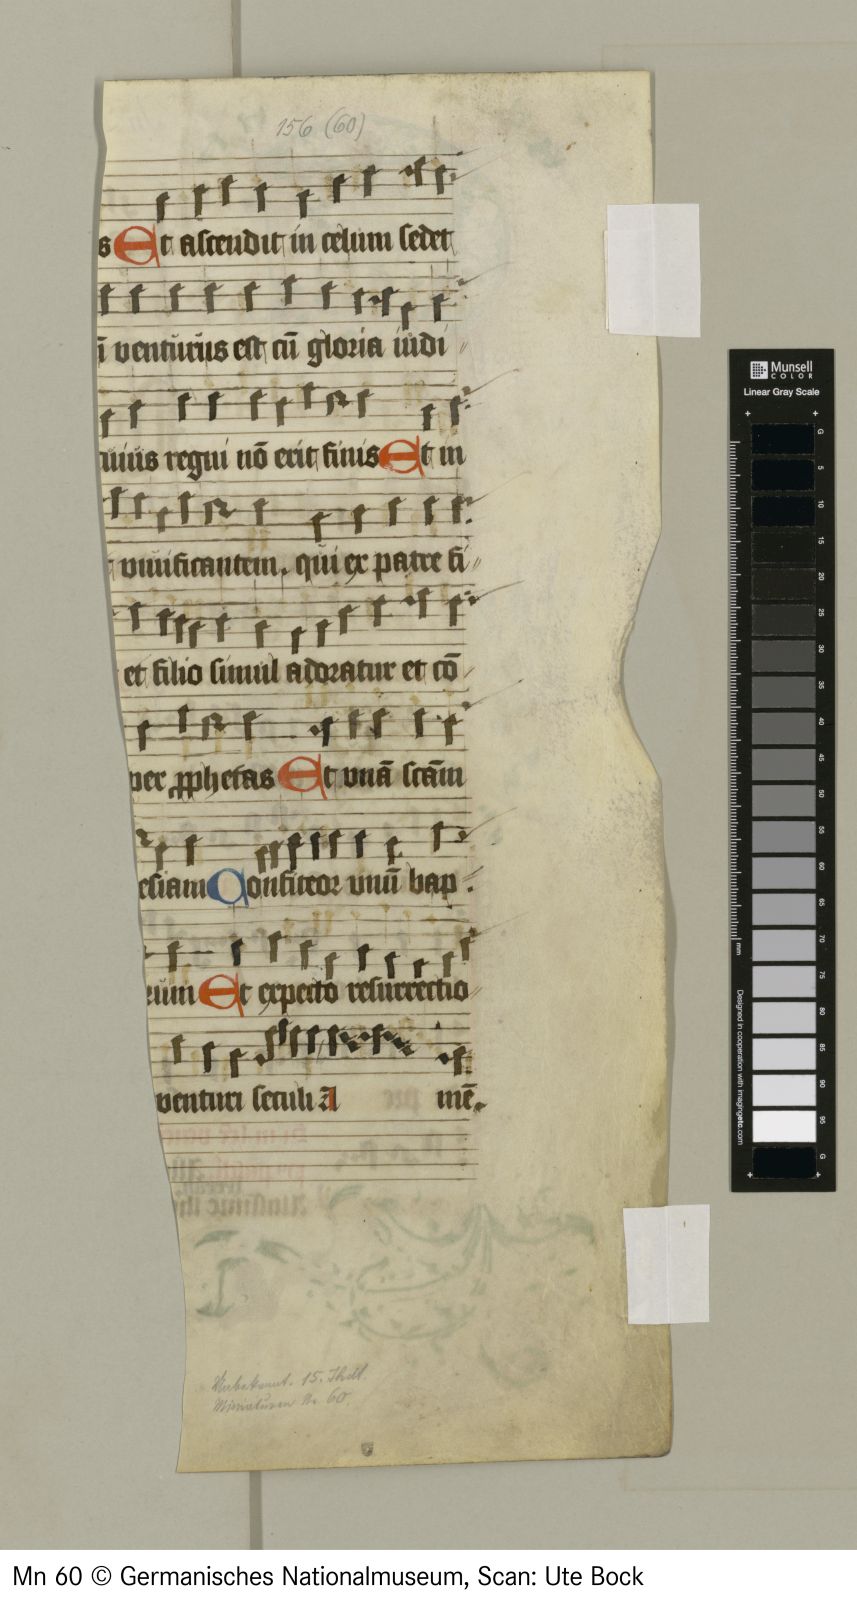 156 (60)
s Et ascendit in celum sedet
ī venturus est cū gloria iudi
uius regni nō erit finis Et in
viuificantem. qui ex patre fi
et filio simul adoratur et cō
per prophetas Et vnā scām
esiam Confiteor vnū bap
rum Et expecto resurrectio
venturi seculi A mē.
Unbekannt. 15. Jhdt.
Miniaturen Nr. 60.
Munsell
COLOR
Linear Gray Scale
G
5
10
15
20
25
30
35
40
45
50
55
60
65
70
75
80
85
90
95
G
mm
Designed in cooperation with imagingetc.com
Mn 60 © Germanisches Nationalmuseum, Scan: Ute Bock